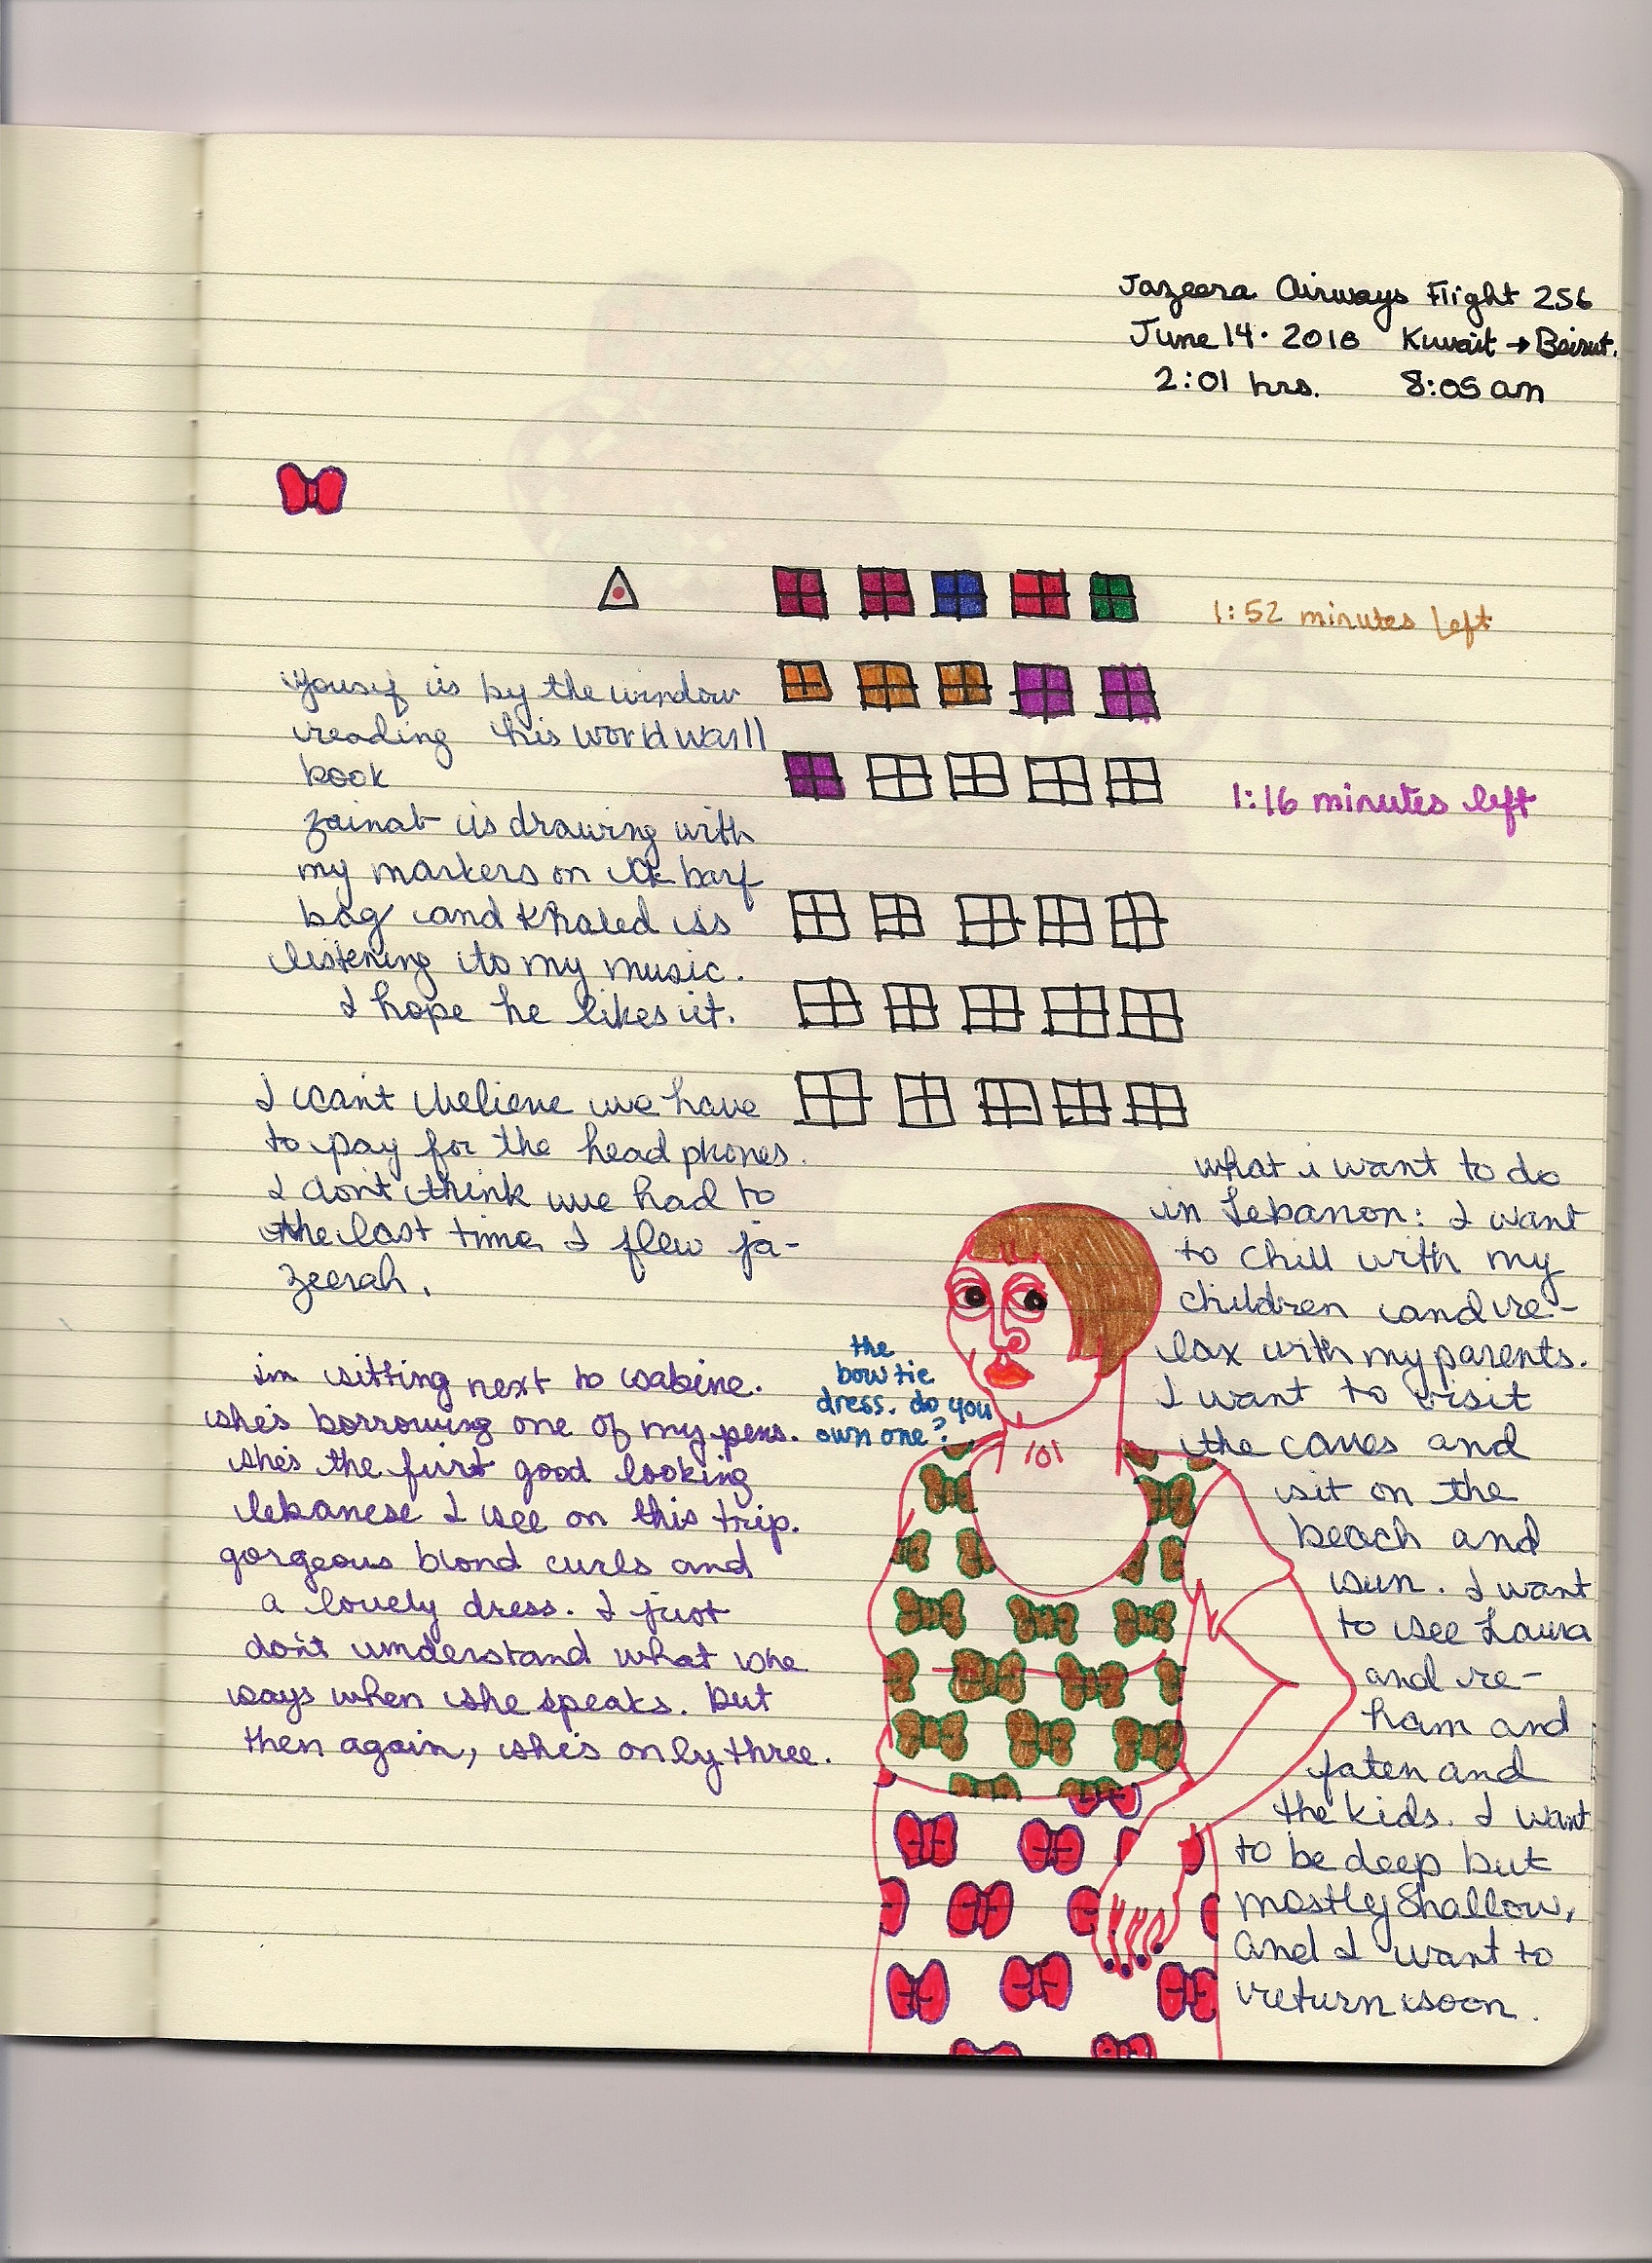 Jazeera Airways Flight 256
June 14. 2010 Kuwait → Beirut.
2:01 hrs. 8:05 am
1:52 minutes left
yousif is by the window
reading his world war II
book
1:16 minutes left
zainab is drawing with
my markers on a barf
bag and Khaled is
listening to my music.
I hope he likes it.
I can't believe we have
to pay for the headphones.
I don't think we had to
the last time I flew ja-
zeerah.
im sitting next to sabine.
she's borrowing one of my pens.
she's the first good looking
lebanese I see on this trip.
gorgeous blond curls and
a lovely dress. I just
don't understand what she
says when she speaks. but
then again, she's only three.
the
bow tie
dress. do you
own one?
what i want to do
in Lebanon: I want
to chill with my
children and re-
lax with my parents.
I want to visit
the caves and
sit on the
beach and
sun. I want
to see Laura
and re-
ham and
faten and
the kids. I want
to be deep but
mostly shallow,
and I want to
return soon.